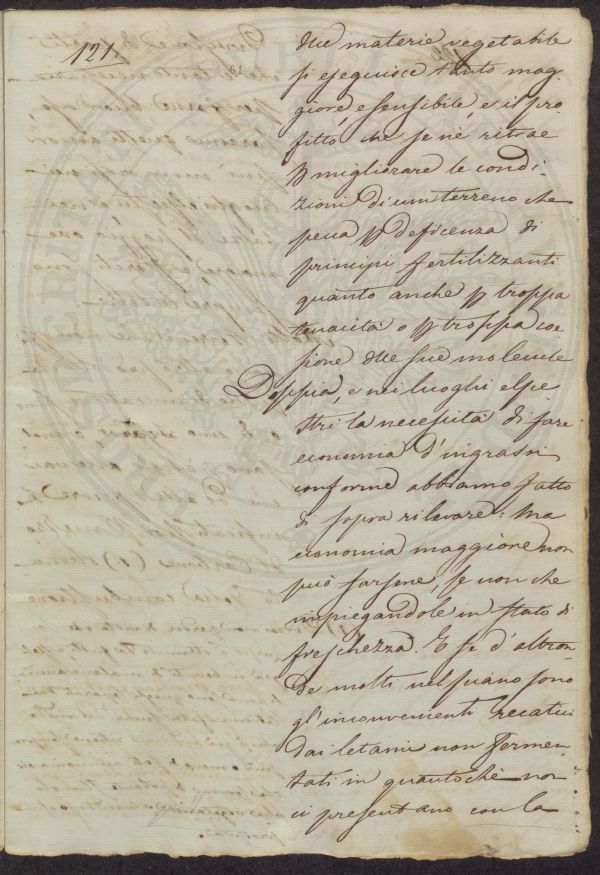 121.
81
dlle materie vegetabile
si eseguisce tanto mag-
giore, e sensibile, e il pro-
fitto, che se ne ritrae
p migliorare le condi-
zioni di un terreno che
pecca p deficenza di
principi fertilizzanti
quanto anche p troppa
tenacità o p troppa coe-
sione dlle sue molecule
Doppia, e nei luoghi alpe-
stri la necessità di fare
economia d'ingrassi
conforme abbiamo fatto
di sopra rilevare: Ma
economia maggiore non
può farsene, se non che
impiegandole in stato di
freschezza. E se d'altron-
de molti nel piano sono
gl'inconvenienti recatici
dai letami non fermen-
tati in quantoché non
ci presentano con la